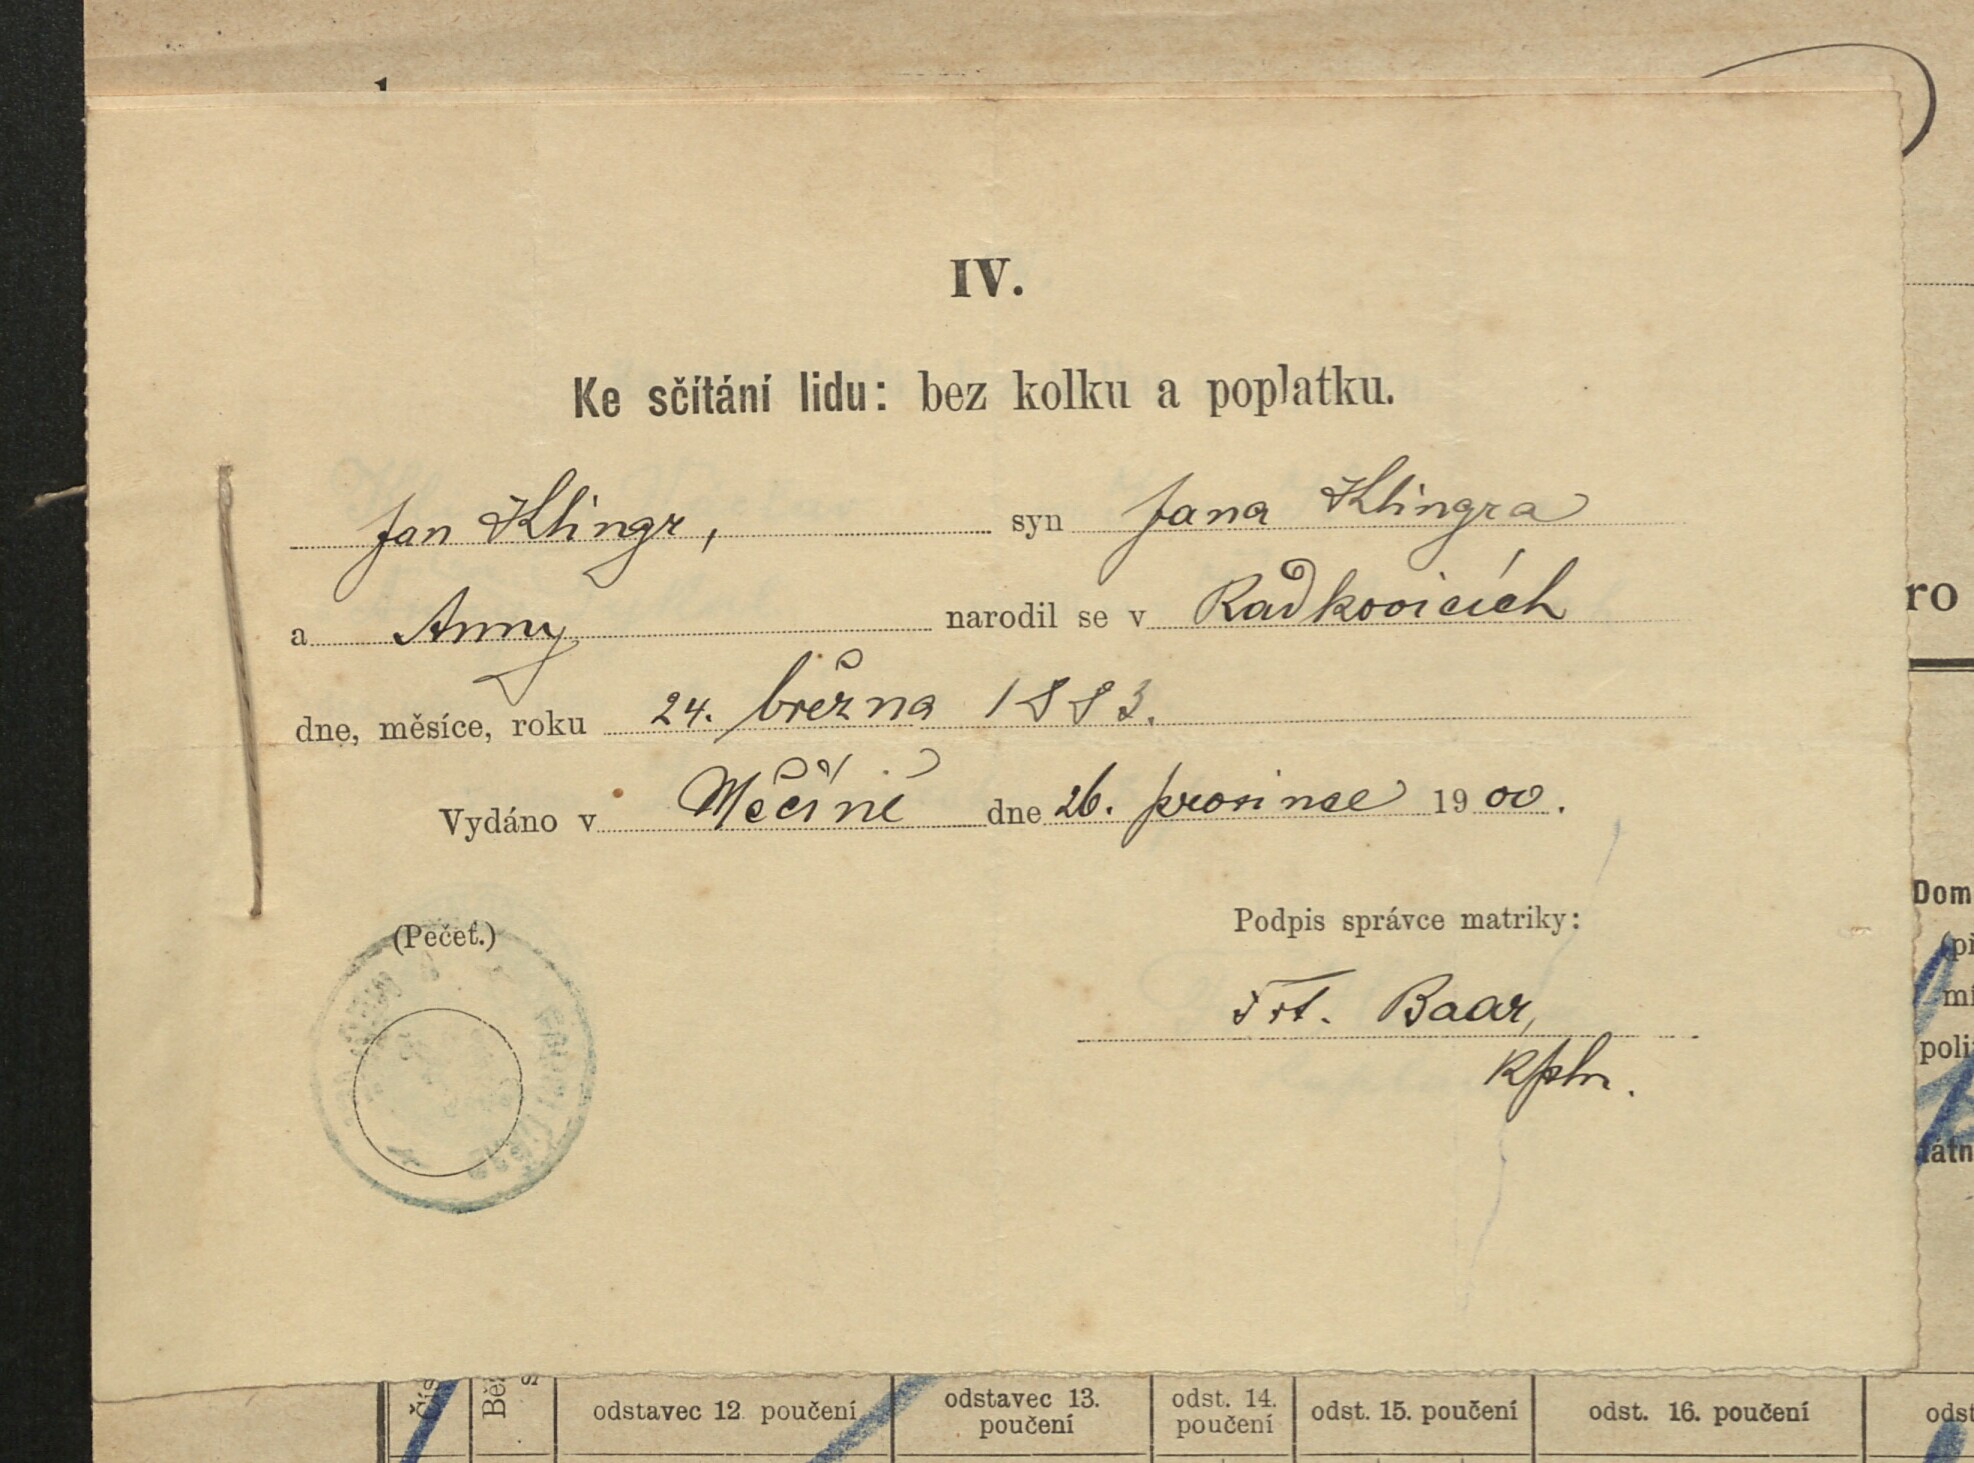 IV.
Ke sčítání lidu: bez kolku a poplatku.
Jan Klingr, syn Jana Klingra
a Anny narodil se v Radkovicích
dne, měsíce, roku 24. března 1883.
Vydáno v Měčíně dne 26. prosince 1900.
(Pečeť.)
Podpis správce matriky:
Frt. Baar,
kpln.
ro
Dom
(př
mí
poli
látn
odstavec 12 poučení
odstavec 13. poučení
odst. 14. poučení
odst. 15. poučení
odst. 16. poučení
odst